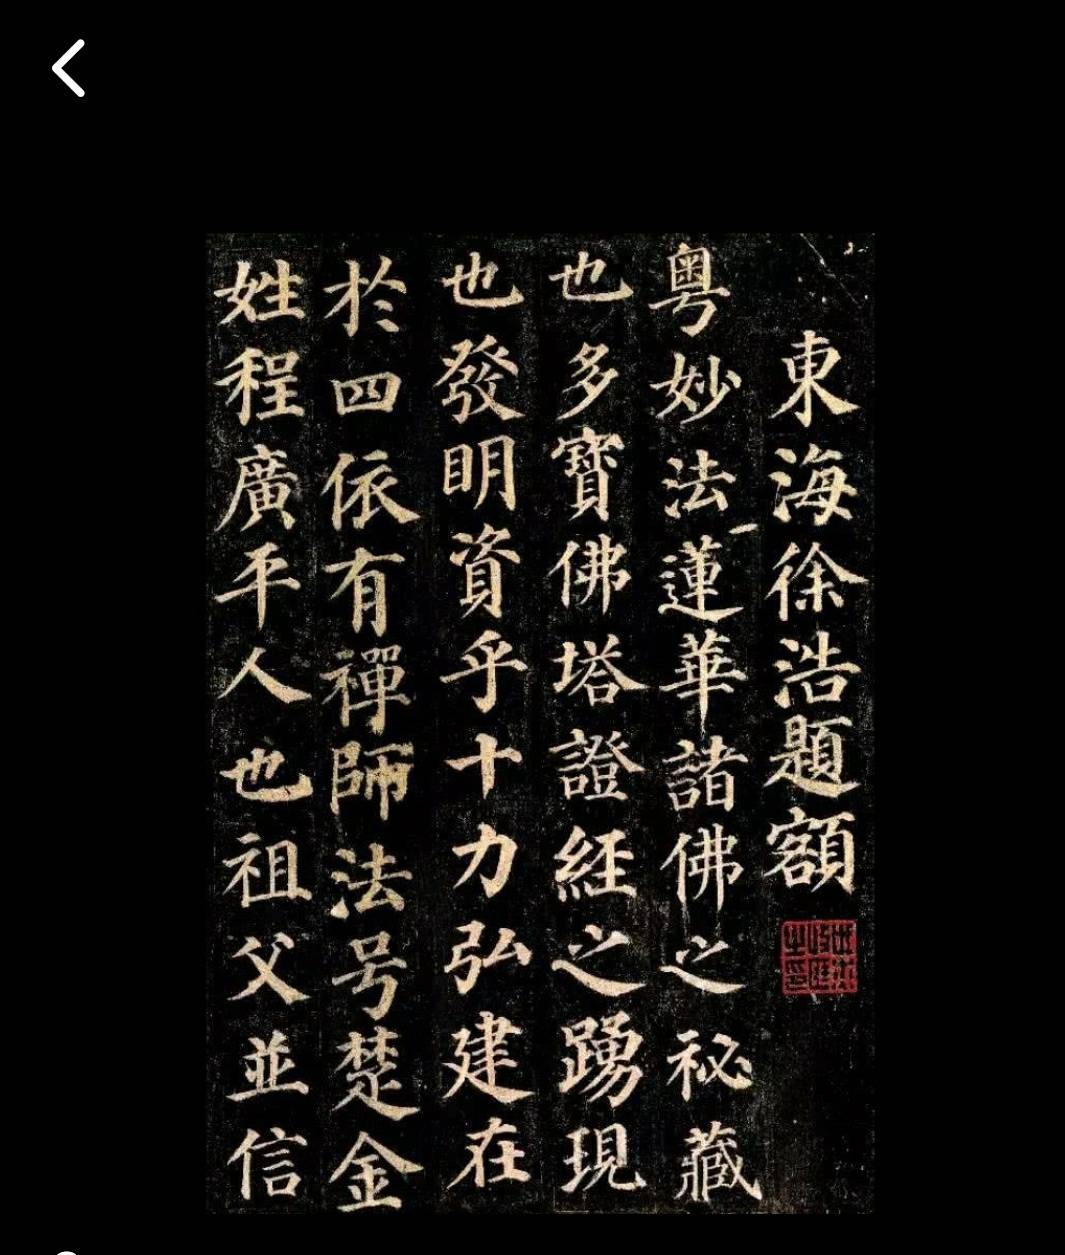 東海徐浩題額
粵妙法蓮華諸佛之祕藏
也多寶佛塔證経之踴現
也發明資乎十力弘建在
於四依有禪師法号楚金
姓程廣平人也祖父並信